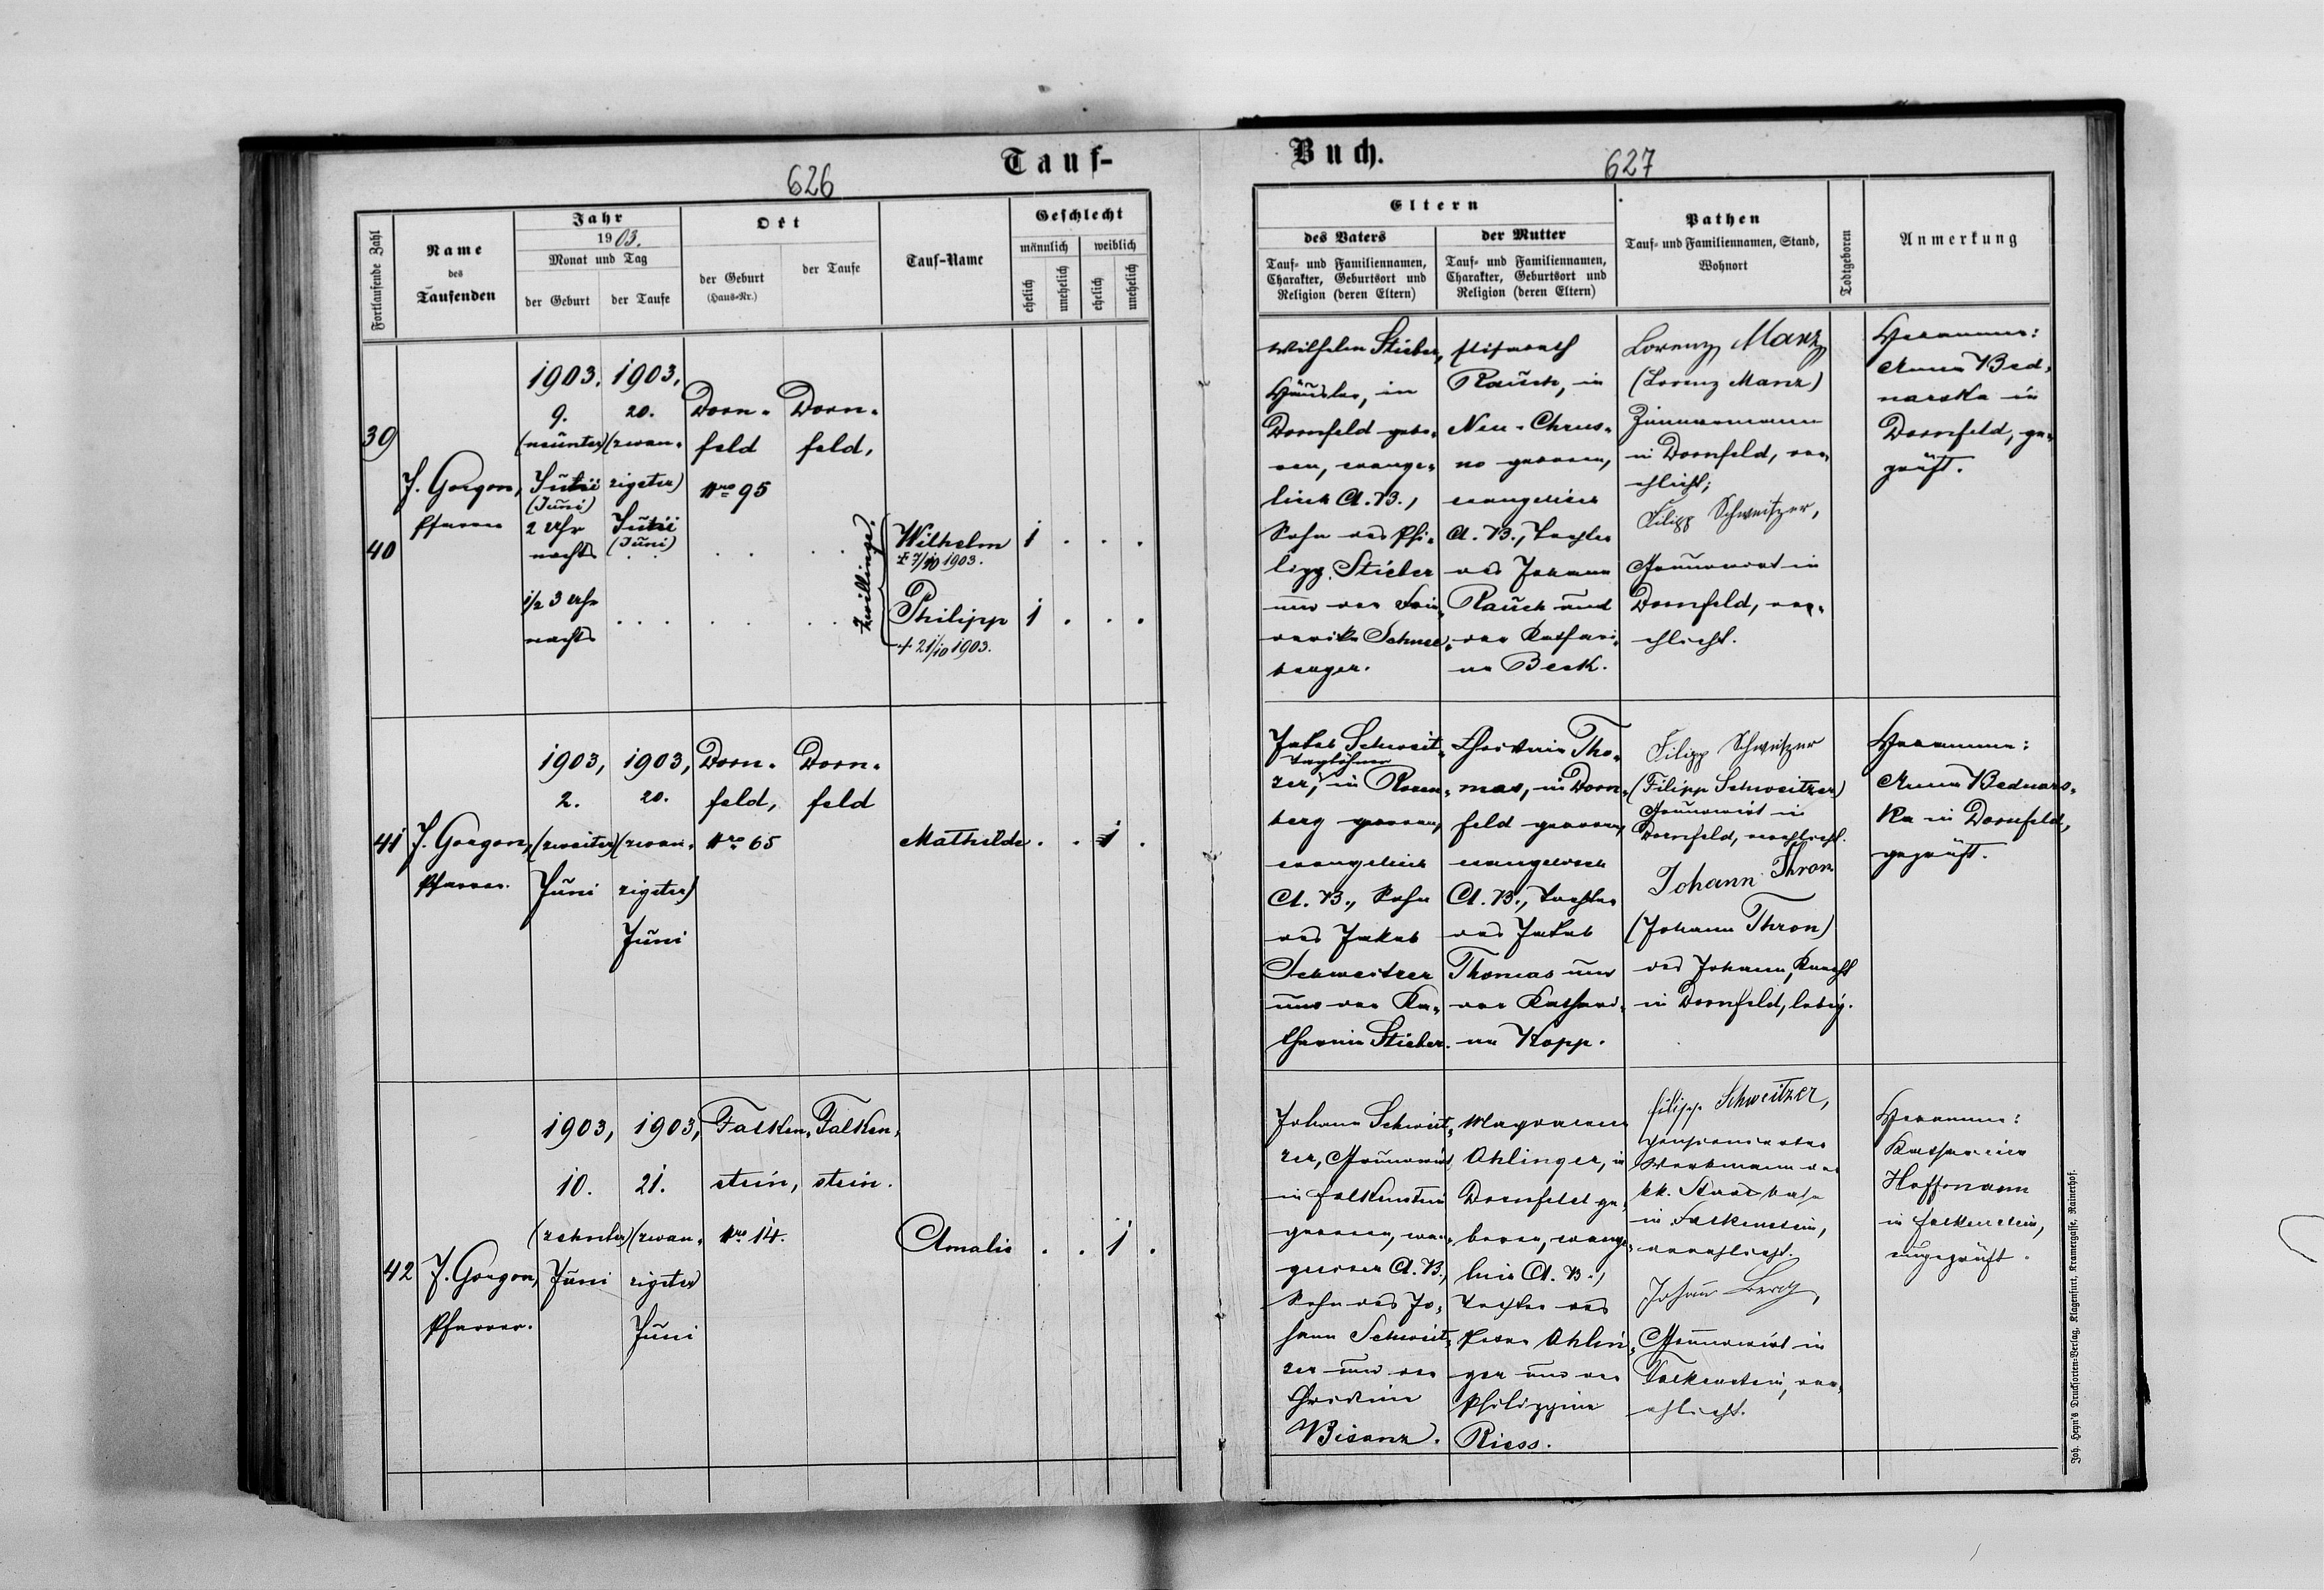 Tauf-
626
Fortlaufende Zahl
Name
des
Taufenden
Jahr
1903.
Monat und Tag
der Geburt
der Taufe
Ort
der Geburt
(Haus-Nr.)
der Taufe
Tauf-Name
Geschlecht
männlich
weiblich
ehelich
unehelich
ehelich
unehelich
39
40
J. Gorgon,
Pfarrer
1903.
9.
(neunter)
Julii
(Juni)
2 Uhr
nachts
1/2 3 Uhr
nachts
1903,
20.
(zwan-
zigster)
Julii
(Juni)
Dorn-
feld
Nro 95
Dorn-
feld,
Zwillinge.
Wilhelm
+ 7/10 1903.
Philipp
+ 21/10 1903.
1 . . .
1 . . .
41
J. Gorgon,
Pfarrer.
1903,
2.
(zweiter)
Juni
1903,
20.
(zwan-
zigster)
Juni
Dorn-
feld,
Nro 65
Dorn-
feld
Mathilde
. . 1 .
42
J. Gorgon,
Pfarrer.
1903,
10.
(zehnter)
Juni
1903,
21.
(zwan-
zigster)
Juni
Falken-
stein,
Nro 14.
Falken-
stein.
Amalie
. . 1 .
Buch.
627
Eltern
des Vaters
Tauf- und Familiennamen,
Charakter, Geburtsort und
Religion (deren Eltern)
der Mutter
Tauf- und Familiennamen,
Charakter, Geburtsort und
Religion (deren Eltern)
Pathen
Tauf- und Familiennamen, Stand,
Wohnort
Todtgeboren
Anmerkung
Wilhelm Stieber,
Häusler, in
Dornfeld gebo-
ren, evange-
lisch A. B.,
Sohn des Phi-
lipp Stieber
und der Frie-
derike Schnee-
berger.
Elisabeth
Rauch, in
Neu-Chrus-
no geboren,
evangelisch
A. B., Tochter
des Johann
Rauch und
der Kathari-
na Beck.
Lorenz Manz
(Lorenz Manz)
Zimmermann
in Dornfeld, ver-
ehlicht;
Filipp Schweitzer,
Grundwirt in
Dornfeld, ver-
ehlicht.
Hebamme:
Anna Bed-
narska in
Dornfeld, ge-
prüft.
Jakob Schweit-
Taglöhner
zer, in Rosen-
berg geboren,
evangelisch
A. B., Sohn
des Jakob
Schweitzer
und der Ka-
tharina Stieber.
Christine Tho-
mas, in Dorn-
feld geboren,
evangelisch
A. B., Tochter
des Jakob
Thomas und
der Kathari-
na Kopp.
Filipp Schweitzer
(Filipp Schweitzer)
Grundwirt in
Dornfeld, verehlicht.
Johann Thron
(Johann Thron)
des Johann, Knecht
in Dornfeld, ledig.
Hebamme:
Anna Bednars-
ka in Dornfeld,
geprüft.
Johann Schweit-
zer, Grundwirt
in Falkenstein
geboren, evan-
gelisch A. B.,
Sohn des Jo-
hann Schweit-
zer und der
Christine
Bisanz.
Magdalena
Ohlinger, in
Dornfeld ge-
boren, evange-
lisch A. B.,
Tochter des
Peter Ohlin-
ger und der
Philippine
Riess.
Filipp Schweitzer,
pensionierter
Werkmann der
kk. Staatsbahn
in Falkenstein,
verehlicht.
Johann Berg,
Grundwirt in
Falkenstein, ver-
ehlicht.
Hebamme:
Katharina
Hoffmann
in Falkenstein,
ungeprüft.
Joh. Heyn's Drucksorten-Verlag, Klagenfurt, Kramergasse, Rainerhof.